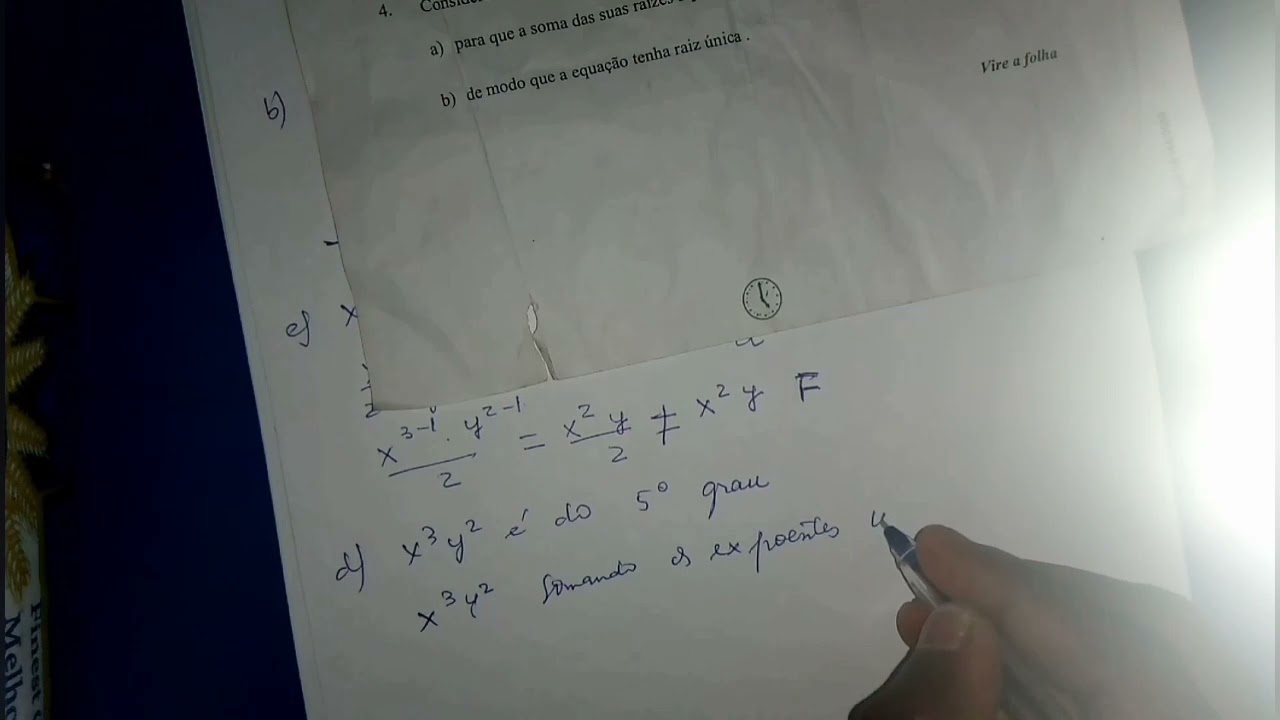 4.
a) para que a soma das suas raízes
b) de modo que a equação tenha raiz única .
Vire a folha
b)
c) x
x^{3-1} . y^{2-1} / 2 = x² y / 2 ≠ x² y F
d) x³y² é do 5º grau
x³y² somando os expoentes
Finest
Melho